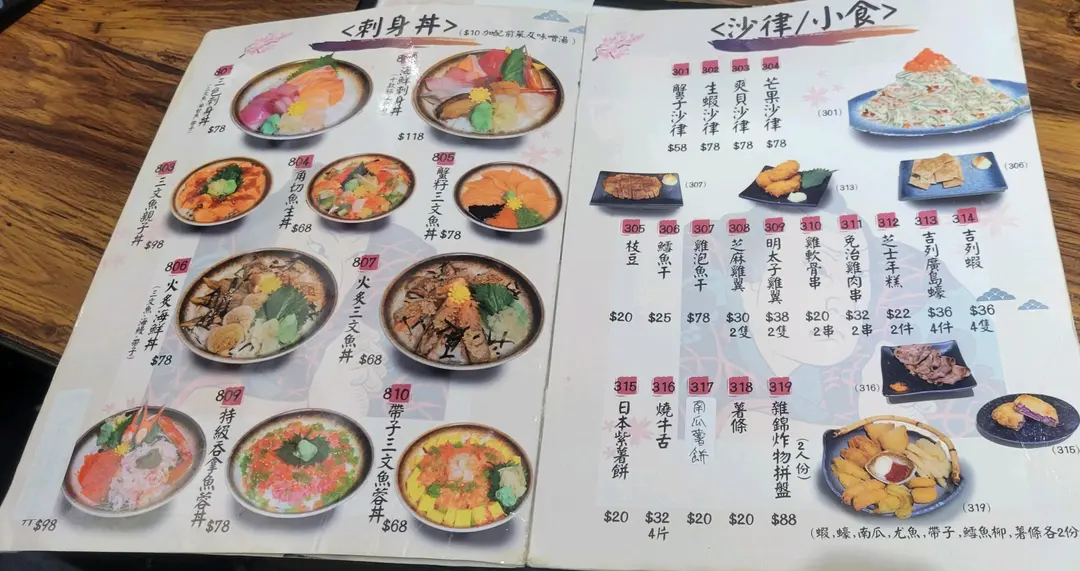 <刺身丼>
($10加配前菜及味噌湯)
801
三色刺身丼
$78
海鮮刺身丼
$118
803
三文魚親子丼
$98
804
角切魚生丼
$68
805
蟹籽三文魚丼
$78
806
火炙海鮮丼
(三文魚,海鰻,帶子)
$78
807
火炙三文魚丼
$68
$98
809
特級吞拿魚蓉丼
$78
810
帶子三文魚蓉丼
$68
<沙律/小食>
301
蟹子沙律
$58
302
生蝦沙律
$78
303
爽貝沙律
$78
304
芒果沙律
$78
(301)
(307)
(313)
(306)
305
枝豆
$20
306
鱈魚干
$25
307
雞泡魚干
$78
308
芝麻雞翼
$30
2隻
309
明太子雞翼
$38
2隻
310
雞軟骨串
$20
2串
311
免治雞肉串
$32
2串
312
芝士年糕
$22
2件
313
吉列廣島蠔
$36
4件
314
吉列蝦
$36
4隻
315
日本紫薯餅
$20
316
燒牛舌
$32
4片
317
南瓜薯餅
$20
318
薯條
$20
319
雜錦炸物拼盤
(2人份)
$88
(316)
(315)
(319)
(蝦,蠔,南瓜,尤魚,帶子,鱈魚柳,薯條各2份